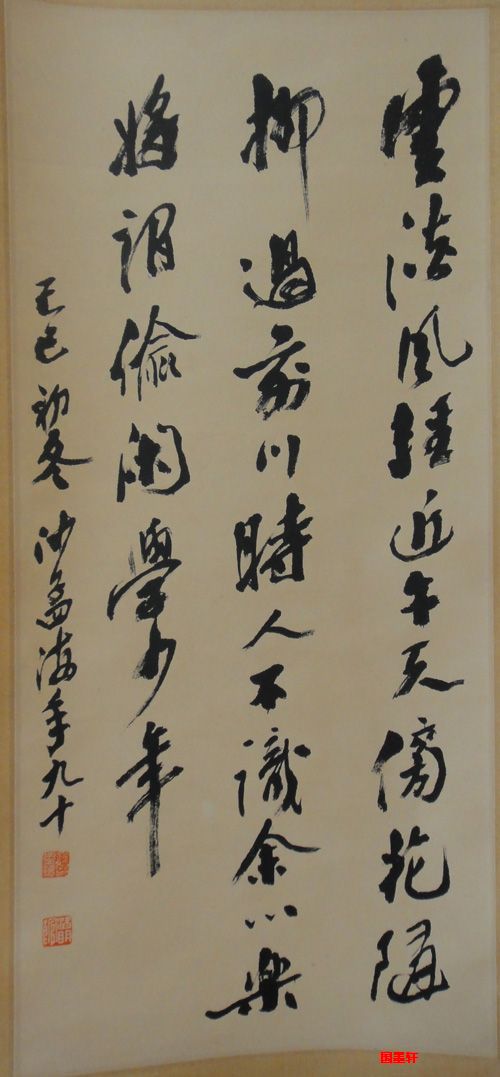 雲淡風輕近午天傍花隨
柳過前川時人不識余心樂
將謂偷閑學少年
己巳初冬沙孟海年九十
国墨轩